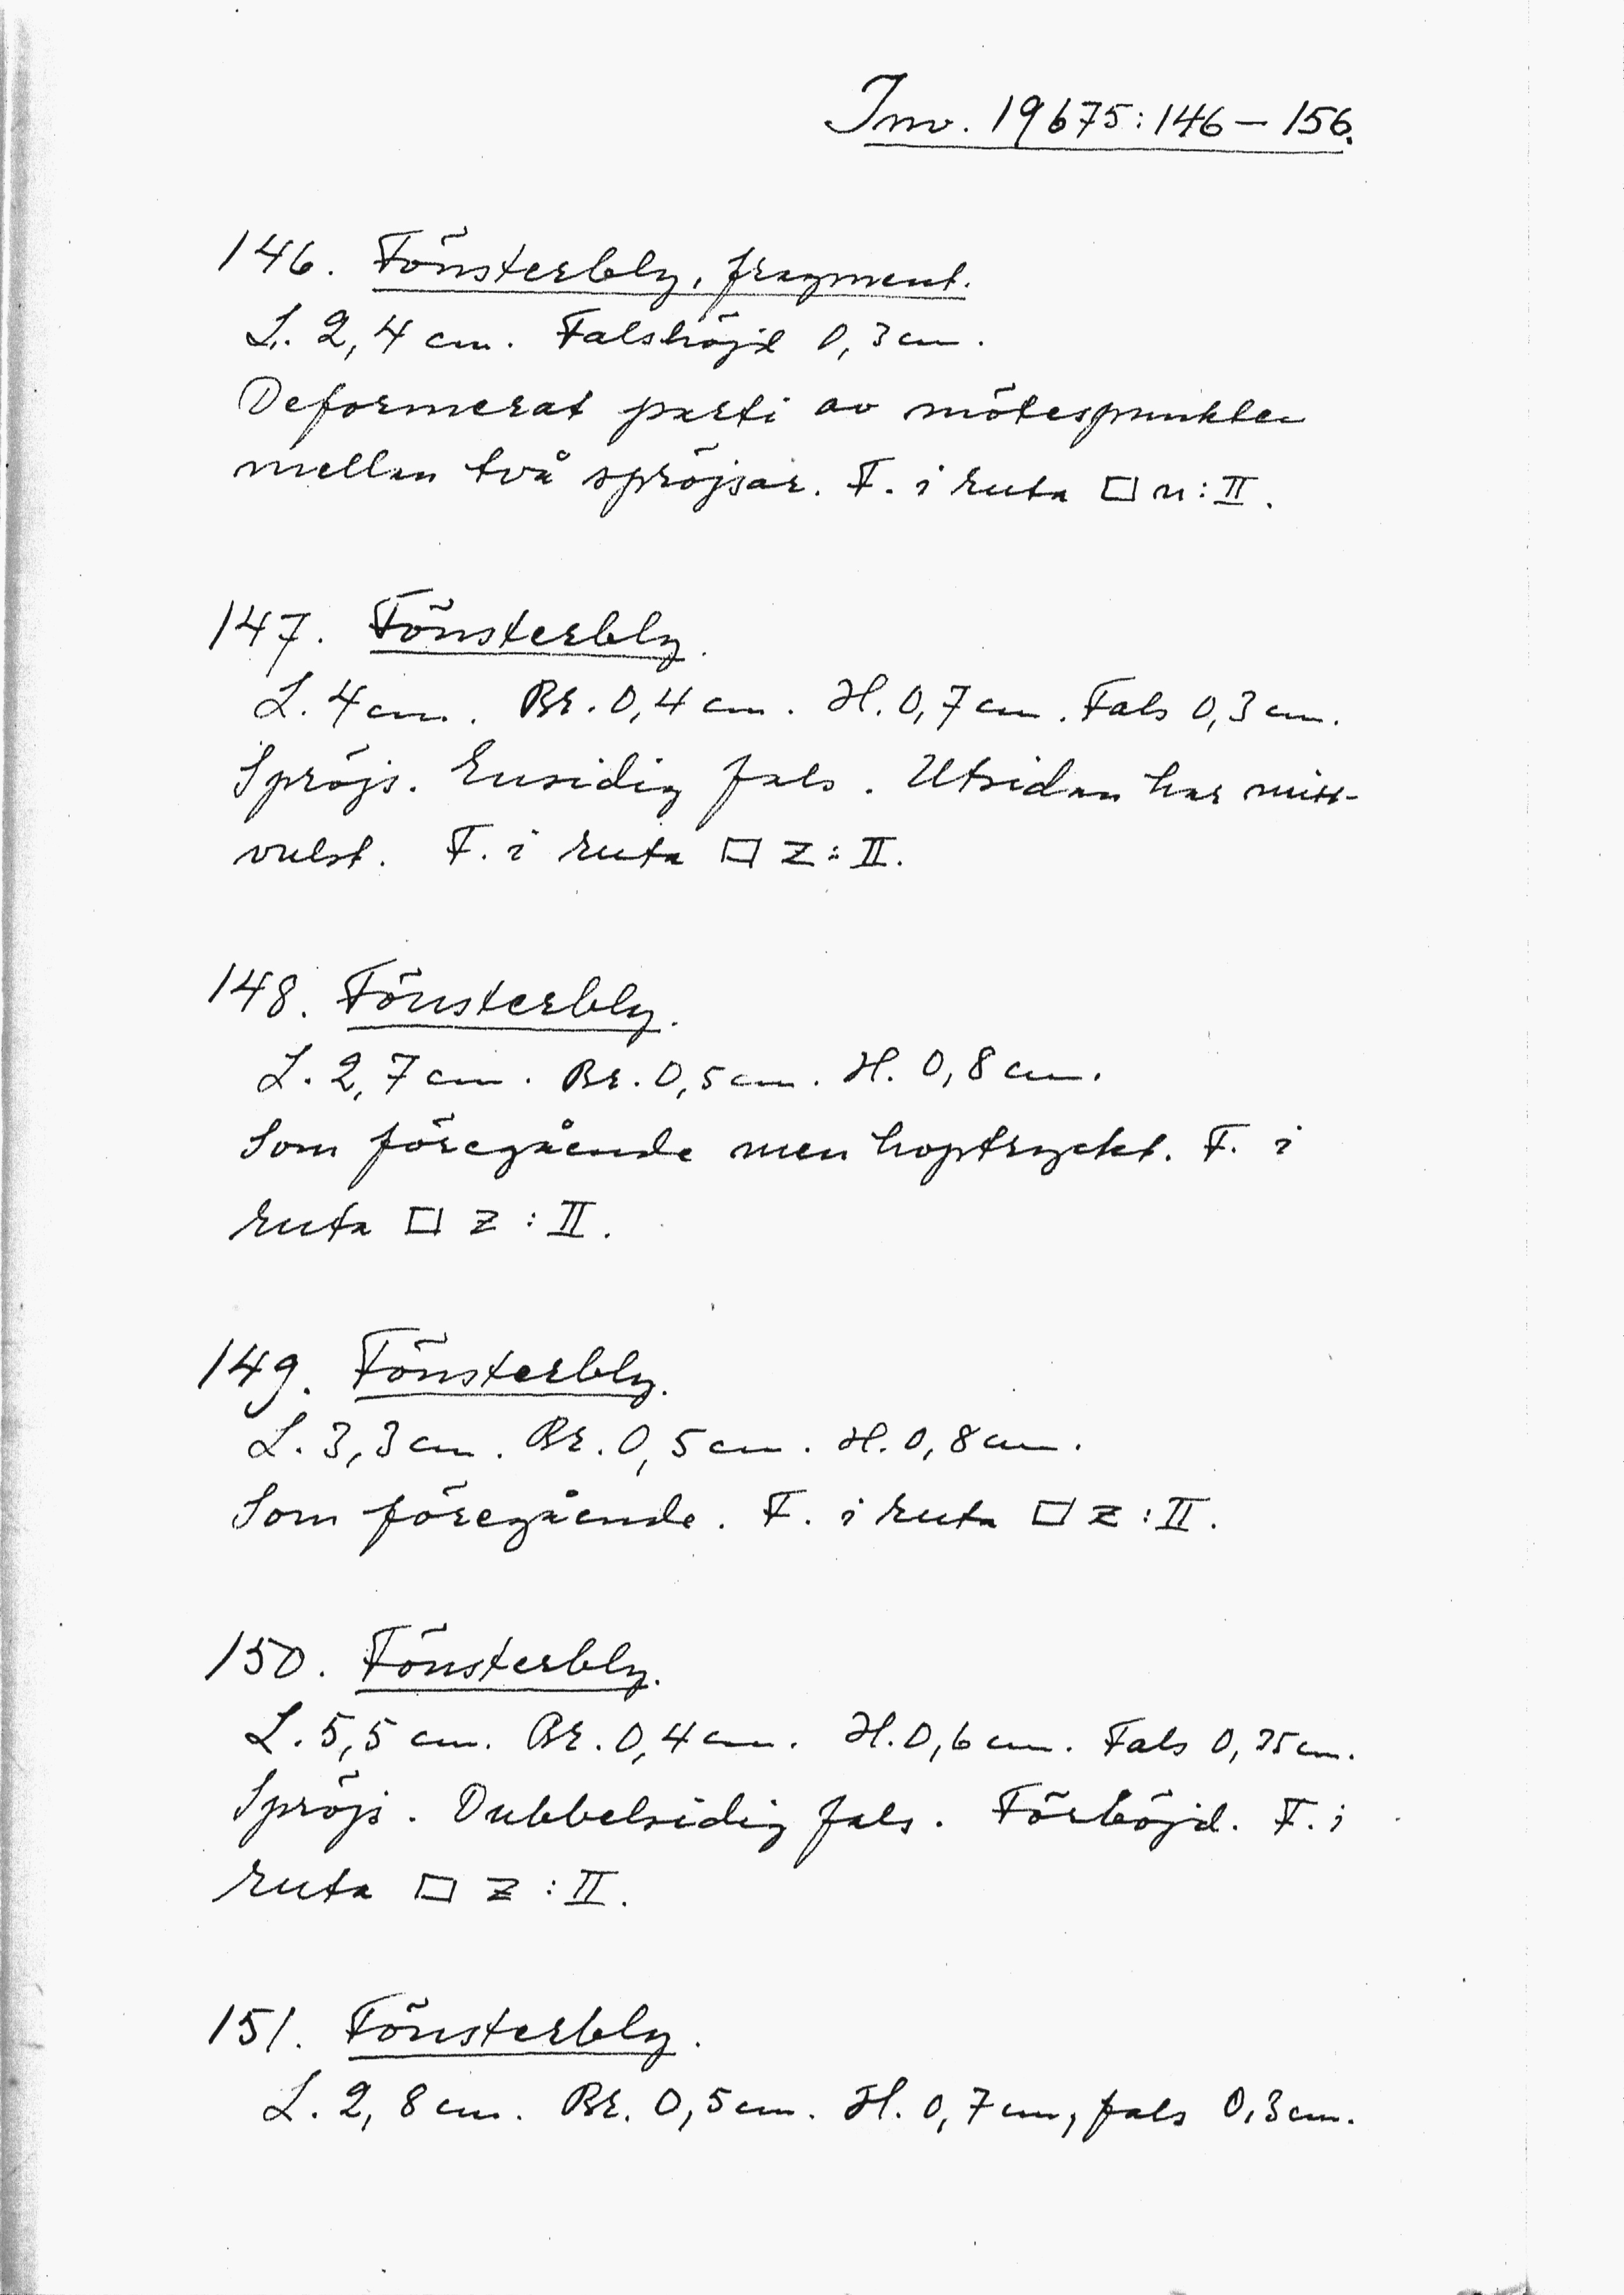 Inv. 19675:146–156.
146. Fönsterbly, fragment.
L. 2,4 cm. Falshöjd 0,3 cm.
Deformerat parti av mötespunkten
mellan två spröjsar. F. i ruta □ n:II.
147. Fönsterbly.
L. 4 cm. Br. 0,4 cm. H. 0,7 cm. Fals 0,3 cm.
Spröjs. Ensidig fals. Utsidan har
vulst. F. i ruta □ z:II.
148. Fönsterbly.
L. 2,7 cm. Br. 0,5 cm. H. 0,8 cm.
Som föregående men hoptryckt. F. i
ruta □ z:II.
149. Fönsterbly.
L. 3,3 cm. Br. 0,5 cm. H. 0,8 cm.
Som föregående. F. i ruta □ z:II.
150. Fönsterbly.
L. 5,5 cm. Br. 0,4 cm. H. 0,6 cm. Fals 0,35 cm.
Spröjs. Dubbelsidig fals. Förböjd. F. i
ruta □ z:II.
151. Fönsterbly.
L. 2,8 cm. Br. 0,5 cm. H. 0,7 cm, fals 0,3 cm.